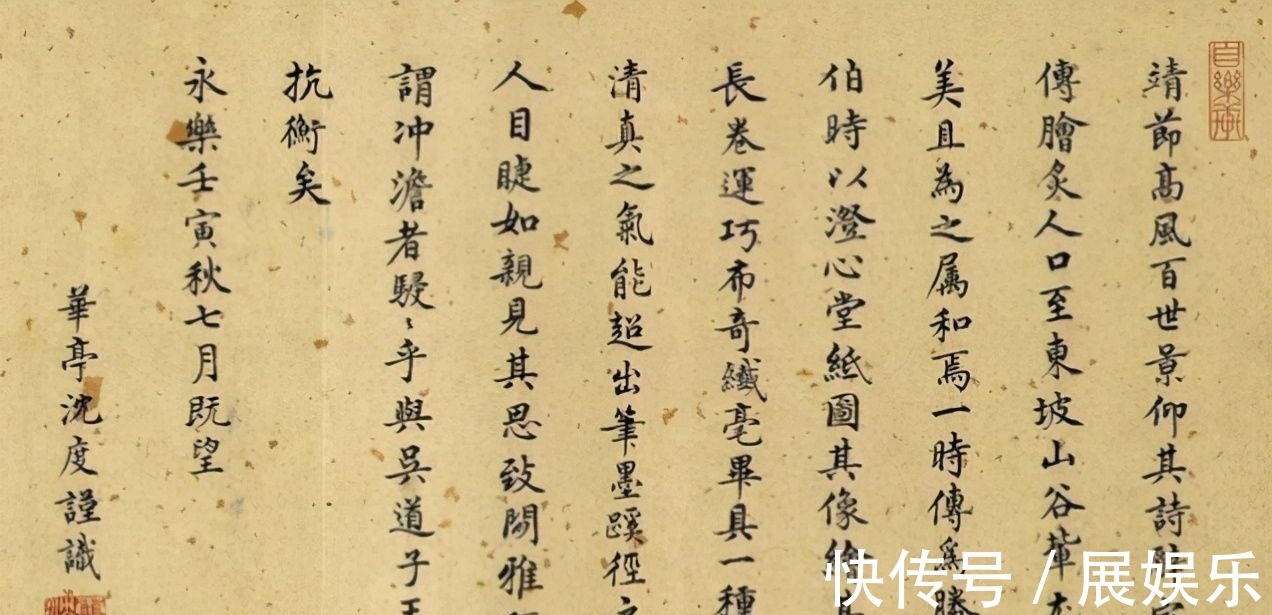 靖節高風百世景仰其詩
傳膾炙人口至東坡山谷輩
美且為之属和焉一時傳為勝
伯時以澄心堂紙圖其像繪
長卷運巧布奇纖毫畢具一種
清真之氣能超出筆墨蹊徑
人目睫如親見其思致閒雅
謂冲澹者駸〻乎與吳道子王
抗衡矣
永樂壬寅秋七月既望
華亭沈度謹識
自樂
快传号 / 展娱乐